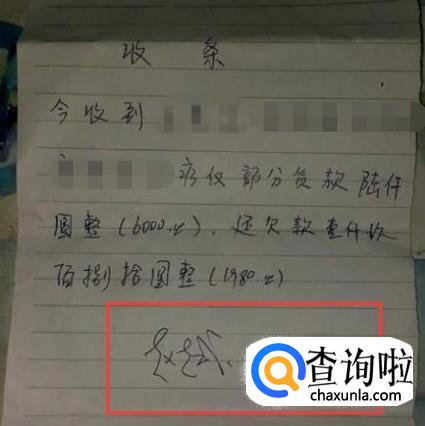 收条
今收到
疗仪部分货款陆仟
圆整(6000.00).还欠款壹仟玖
佰捌拾圆整(1980.00)
查询啦
chaxunla.com